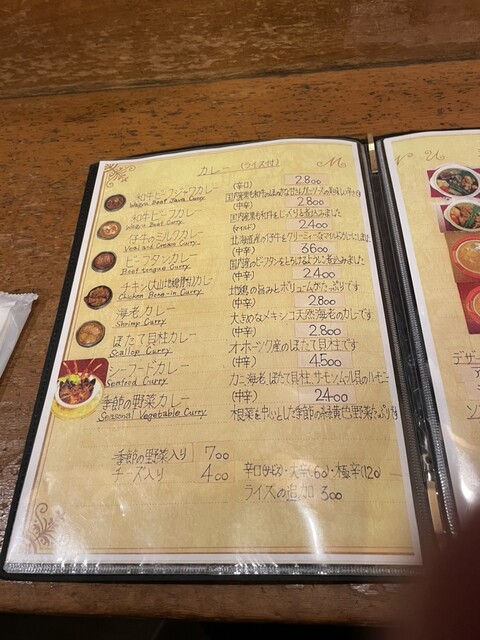 カレー (ライス付)
和牛ビーフジャワカレー (辛口) 2800
Wagyu Beef Jawa Curry
和牛ビーフカレー (中辛) 2800
Wagyu Beef Curry 国内産黒毛和牛をじっくり煮込みました
仔牛のミルクカレー (マイルド) 2400
Veal and Cream Curry 北海道産の仔牛をクリーミィーな
ビーフタンカレー (中辛) 3600
Beef tongue Curry 国内産のビーフタンをとろけるように煮込みました
チキン(大山地鶏骨付)カレー (中辛) 2400
Chicken Bone-in Curry 地鶏の旨みとボリュームがたっぷりです
海老カレー (中辛) 2800
Shrimp Curry 大きめなメキシコ天然海老のカレーです
ほたて貝柱カレー (中辛) 2800
Scallop Curry オホーツク産のほたて貝柱です
シーフードカレー (中辛) 4500
Seafood Curry カニ、海老、ほたて貝柱、サーモン、ムール貝のハーモニー
季節の野菜カレー (中辛) 2400
Seasonal Vegetable Curry 根菜を中心とした季節の緑黄色野菜たっぷり
季節の野菜入り 700
チーズ入り 400
ライスの追加 300
デザー